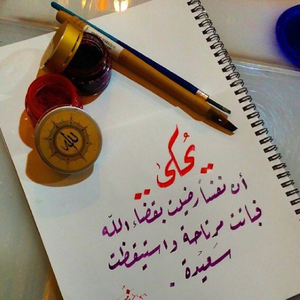 الله
يُحكى..
أن نفساً رضيت بقضاء الله
فباتت مرتاحة واستيقظت
سعيدة.